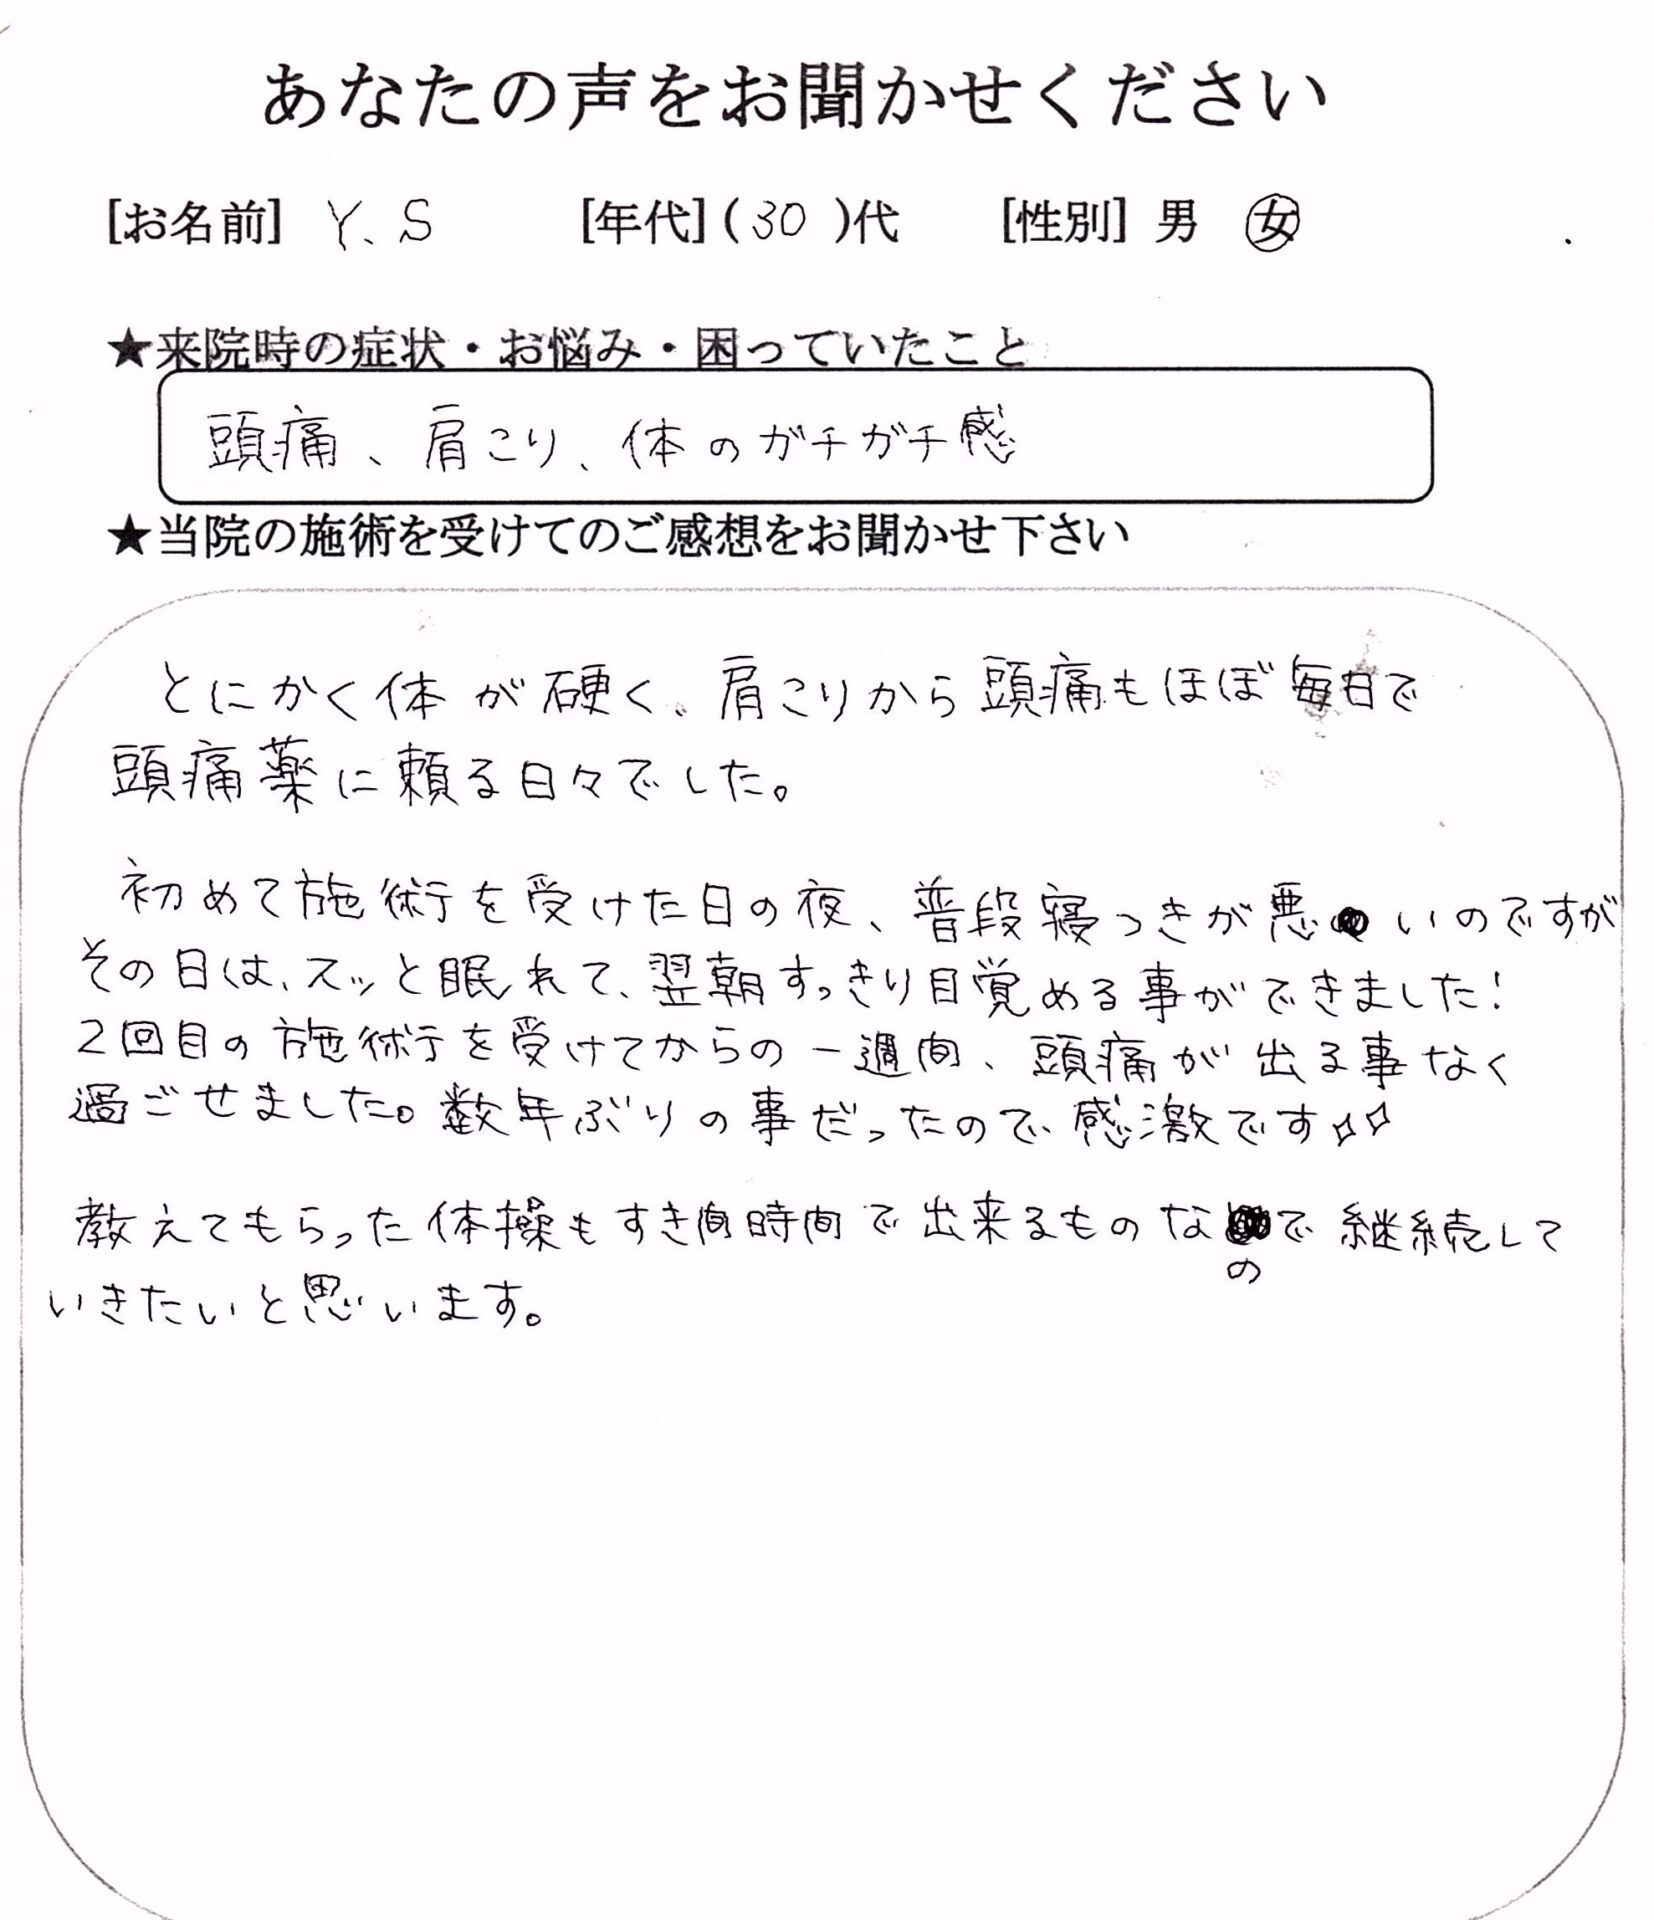 あなたの声をお聞かせください
[お名前] Y.S [年代](30)代 [性別] 男 女
★来院時の症状・お悩み・困っていたこと
頭痛、肩こり、体のガチガチ感
★当院の施術を受けてのご感想をお聞かせ下さい
とにかく体が硬く、肩こりから頭痛もほぼ毎日で
頭痛薬に頼る日々でした。
初めて施術を受けた日の夜、普段寝つきが悪いのですが
その日は、スッと眠れて、翌朝すっきり目覚める事ができました!
2回目の施術を受けてからの一週間、頭痛が出る事なく
過ごせました。数年ぶりの事だったので、感激です☆☆
教えてもらった体操もすき間時間で出来るものなので継続して
いきたいと思います。